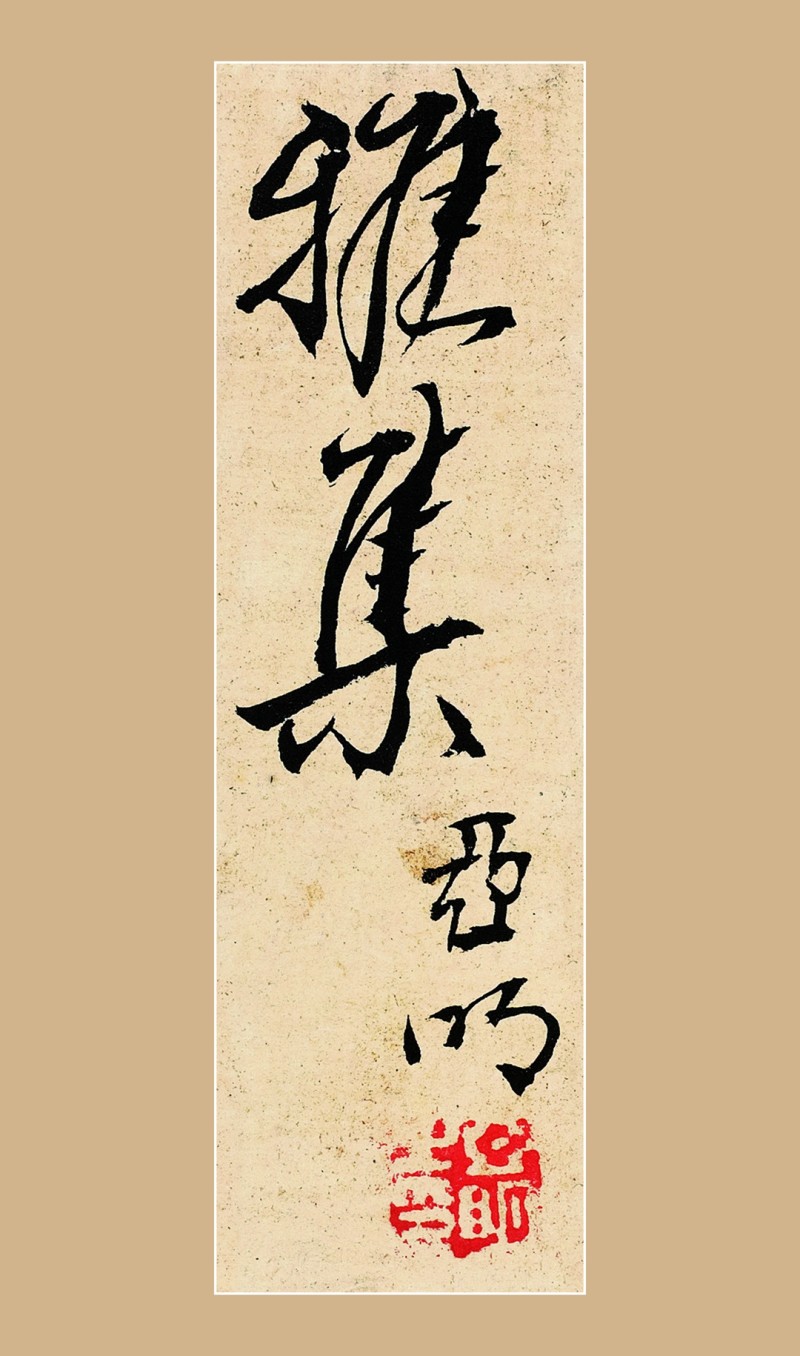 雅集
亞明